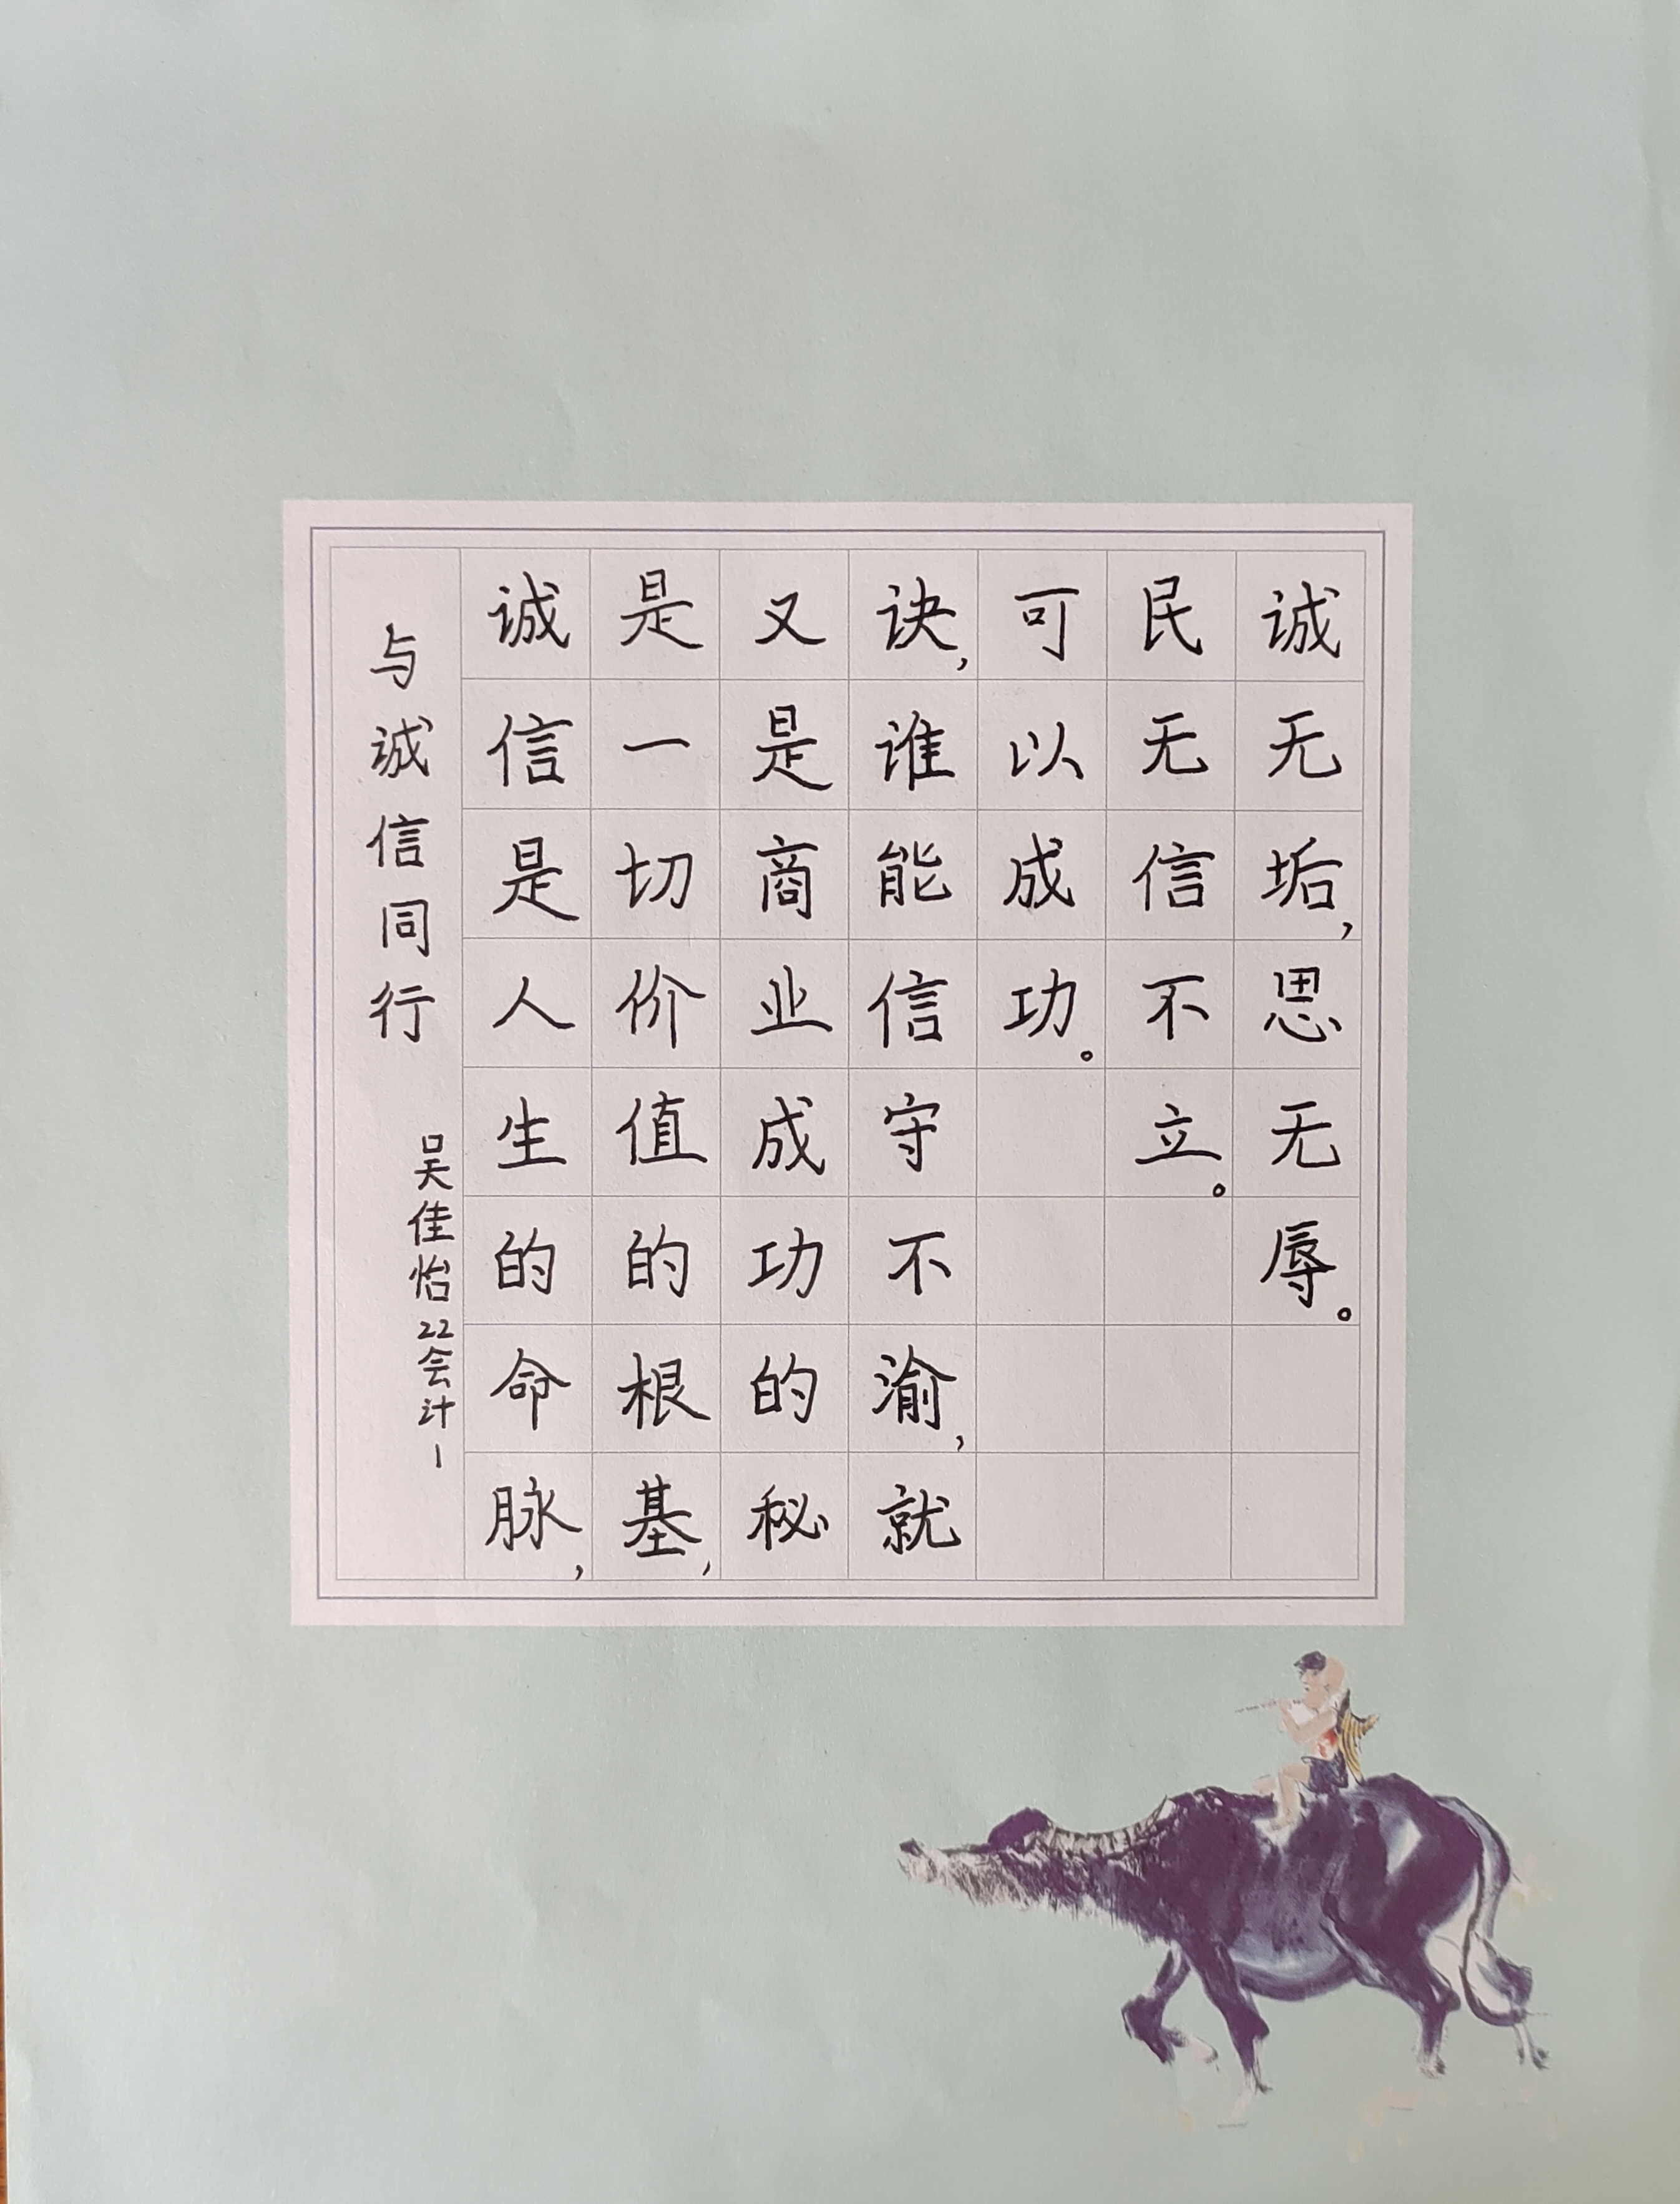 与诚信同行
吴佳怡22会计1
诚信是人生的命脉,
是一切价值的根基,
又是商业成功的秘
诀,谁能信守不渝,就
可以成功。
民无信不立。
诚无垢,思无辱。